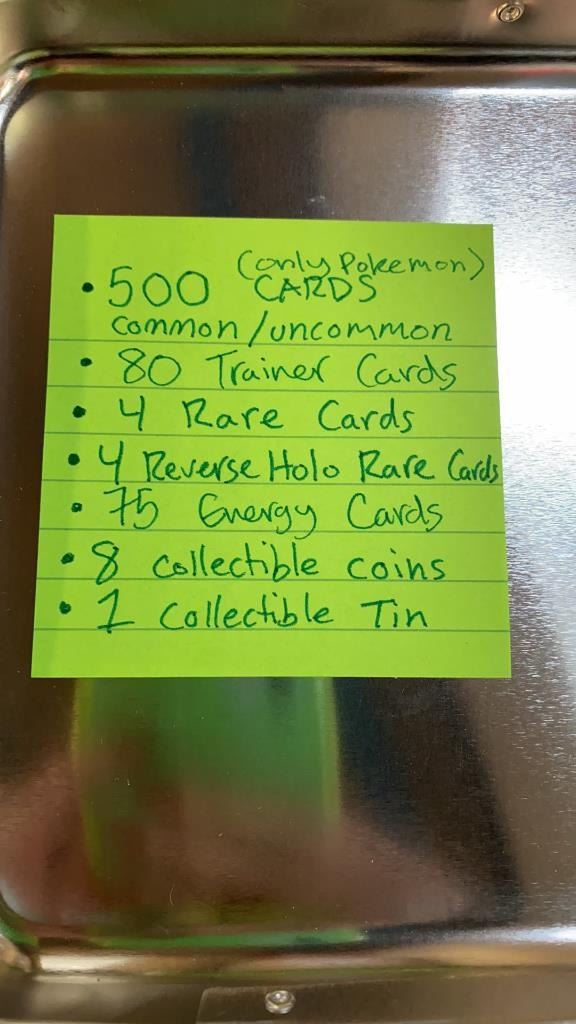 (only Pokemon)
• 500 CARDS
common/uncommon
• 80 Trainer Cards
• 4 Rare Cards
• 4 Reverse Holo Rare Cards
• 75 Energy Cards
• 8 collectible coins
• 1 Collectible Tin